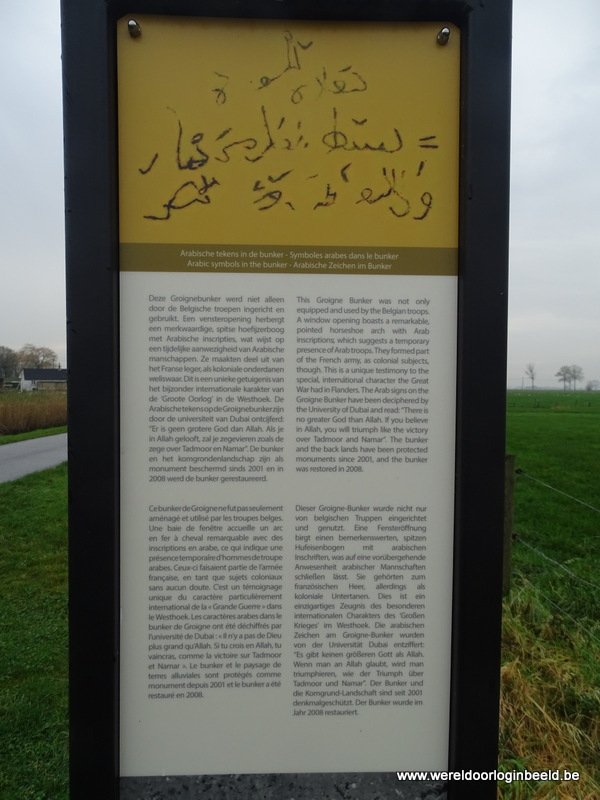 Arabische tekens in de bunker - Symboles arabes dans le bunker
Arabic symbols in the bunker - Arabische Zeichen im Bunker
Deze Groignebunker werd niet alleen
door de Belgische troepen ingericht en
gebruikt. Een vensteropening herbergt
een merkwaardige, spitse hoefijzerboog
met Arabische inscripties, wat wijst op
een tijdelijke aanwezigheid van Arabische
manschappen. Ze maakten deel uit van
het Franse leger, als koloniale onderdanen
weliswaar. Dit is een unieke getuigenis van
het bijzonder internationale karakter van
de 'Groote Oorlog' in de Westhoek. De
Arabische tekens op de Groignebunker zijn
door de universiteit van Dubai ontcijferd:
"Er is geen grotere God dan Allah. Als je
in Allah gelooft, zal je zegevieren zoals de
zege over Tadmoor en Namar". De bunker
en het komgrondenlandschap zijn als
monument beschermd sinds 2001 en in
2008 werd de bunker gerestaureerd.
This Groigne Bunker was not only
equipped and used by the Belgian troops.
A window opening boasts a remarkable,
pointed horseshoe arch with Arab
inscriptions, which suggests a temporary
presence of Arab troops. They formed part
of the French army, as colonial subjects,
though. This is a unique testimony to the
special, international character the Great
War had in Flanders. The Arab signs on the
Groigne Bunker have been deciphered by
the University of Dubai and read: "There is
no greater God than Allah. If you believe
in Allah, you will triumph like the victory
over Tadmoor and Namar". The bunker
and the back lands have been protected
monuments since 2001, and the bunker
was restored in 2008.
Ce bunker de Groigne ne fut pas seulement
aménagé et utilisé par les troupes belges.
Une baie de fenêtre accueille un arc
en fer à cheval remarquable avec des
inscriptions en arabe, ce qui indique une
présence temporaire d'hommes de troupe
arabes. Ceux-ci faisaient partie de l'armée
française, en tant que sujets coloniaux
sans aucun doute. C'est un témoignage
unique du caractère particulièrement
international de la « Grande Guerre » dans
le Westhoek. Les caractères arabes dans le
bunker de Groigne ont été déchiffrés par
l'université de Dubai : « Il n'y a pas de Dieu
plus grand qu'Allah. Si tu crois en Allah, tu
vaincras, comme la victoire sur Tadmoor
et Namar ». Le bunker et le paysage de
terres alluviales sont protégés comme
monument depuis 2001 et le bunker a été
restauré en 2008.
Dieser Groigne-Bunker wurde nicht nur
von belgischen Truppen eingerichtet
und genutzt. Eine Fensteröffnung
birgt einen bemerkenswerten, spitzen
Hufeisenbogen mit arabischen
Inschriften, was auf eine vorübergehende
Anwesenheit arabischer Mannschaften
schließen lässt. Sie gehörten zum
französischen Heer, allerdings als
koloniale Untertanen. Dies ist ein
einzigartiges Zeugnis des besonderen
internationalen Charakters des 'Großen
Krieges' im Westhoek. Die arabischen
Zeichen am Groigne-Bunker wurden
von der Universität Dubai entziffert:
"Es gibt keinen größeren Gott als Allah.
Wenn man an Allah glaubt, wird man
triumphieren, wie der Triumph über
Tadmoor und Namar". Der Bunker und
die Komgrund-Landschaft sind seit 2001
denkmalgeschützt. Der Bunker wurde im
Jahr 2008 restauriert.
www.wereldoorloginbeeld.be